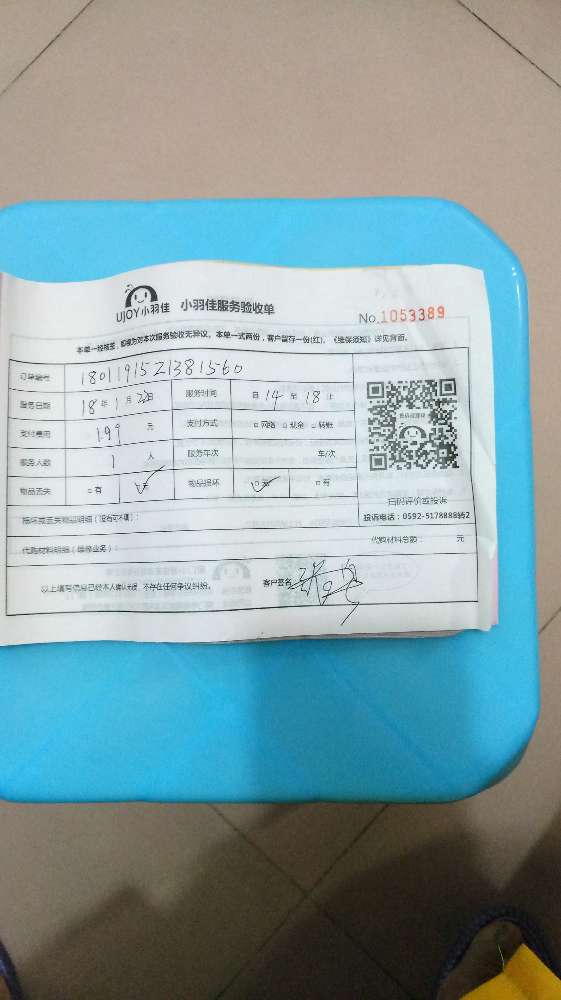 UJOY小羽佳 小羽佳服务验收单
No.1053389
本单一经核签，即视为对本次服务验收无异议。本单一式两份，客户留存一份(红)，《维保须知》详见背面。
订单编号 1801191521381560
服务日期 18年1月22日 服务时间 自14至18止
支付费用 199元 支付方式 □网络 □现金 □转账
服务人数 1人 服务年次 车/次
物品丢失 □有 □无 物品损坏 □无 □有
扫码评价或投诉
损坏或丢失物品明细（没有可不填）：
投诉电话：0592-5178888转2
代购材料明细（维修业务）： 代购材料总额： 元
以上填写信息已经本人确认无误 不存在任何争议纠纷。 客户签名